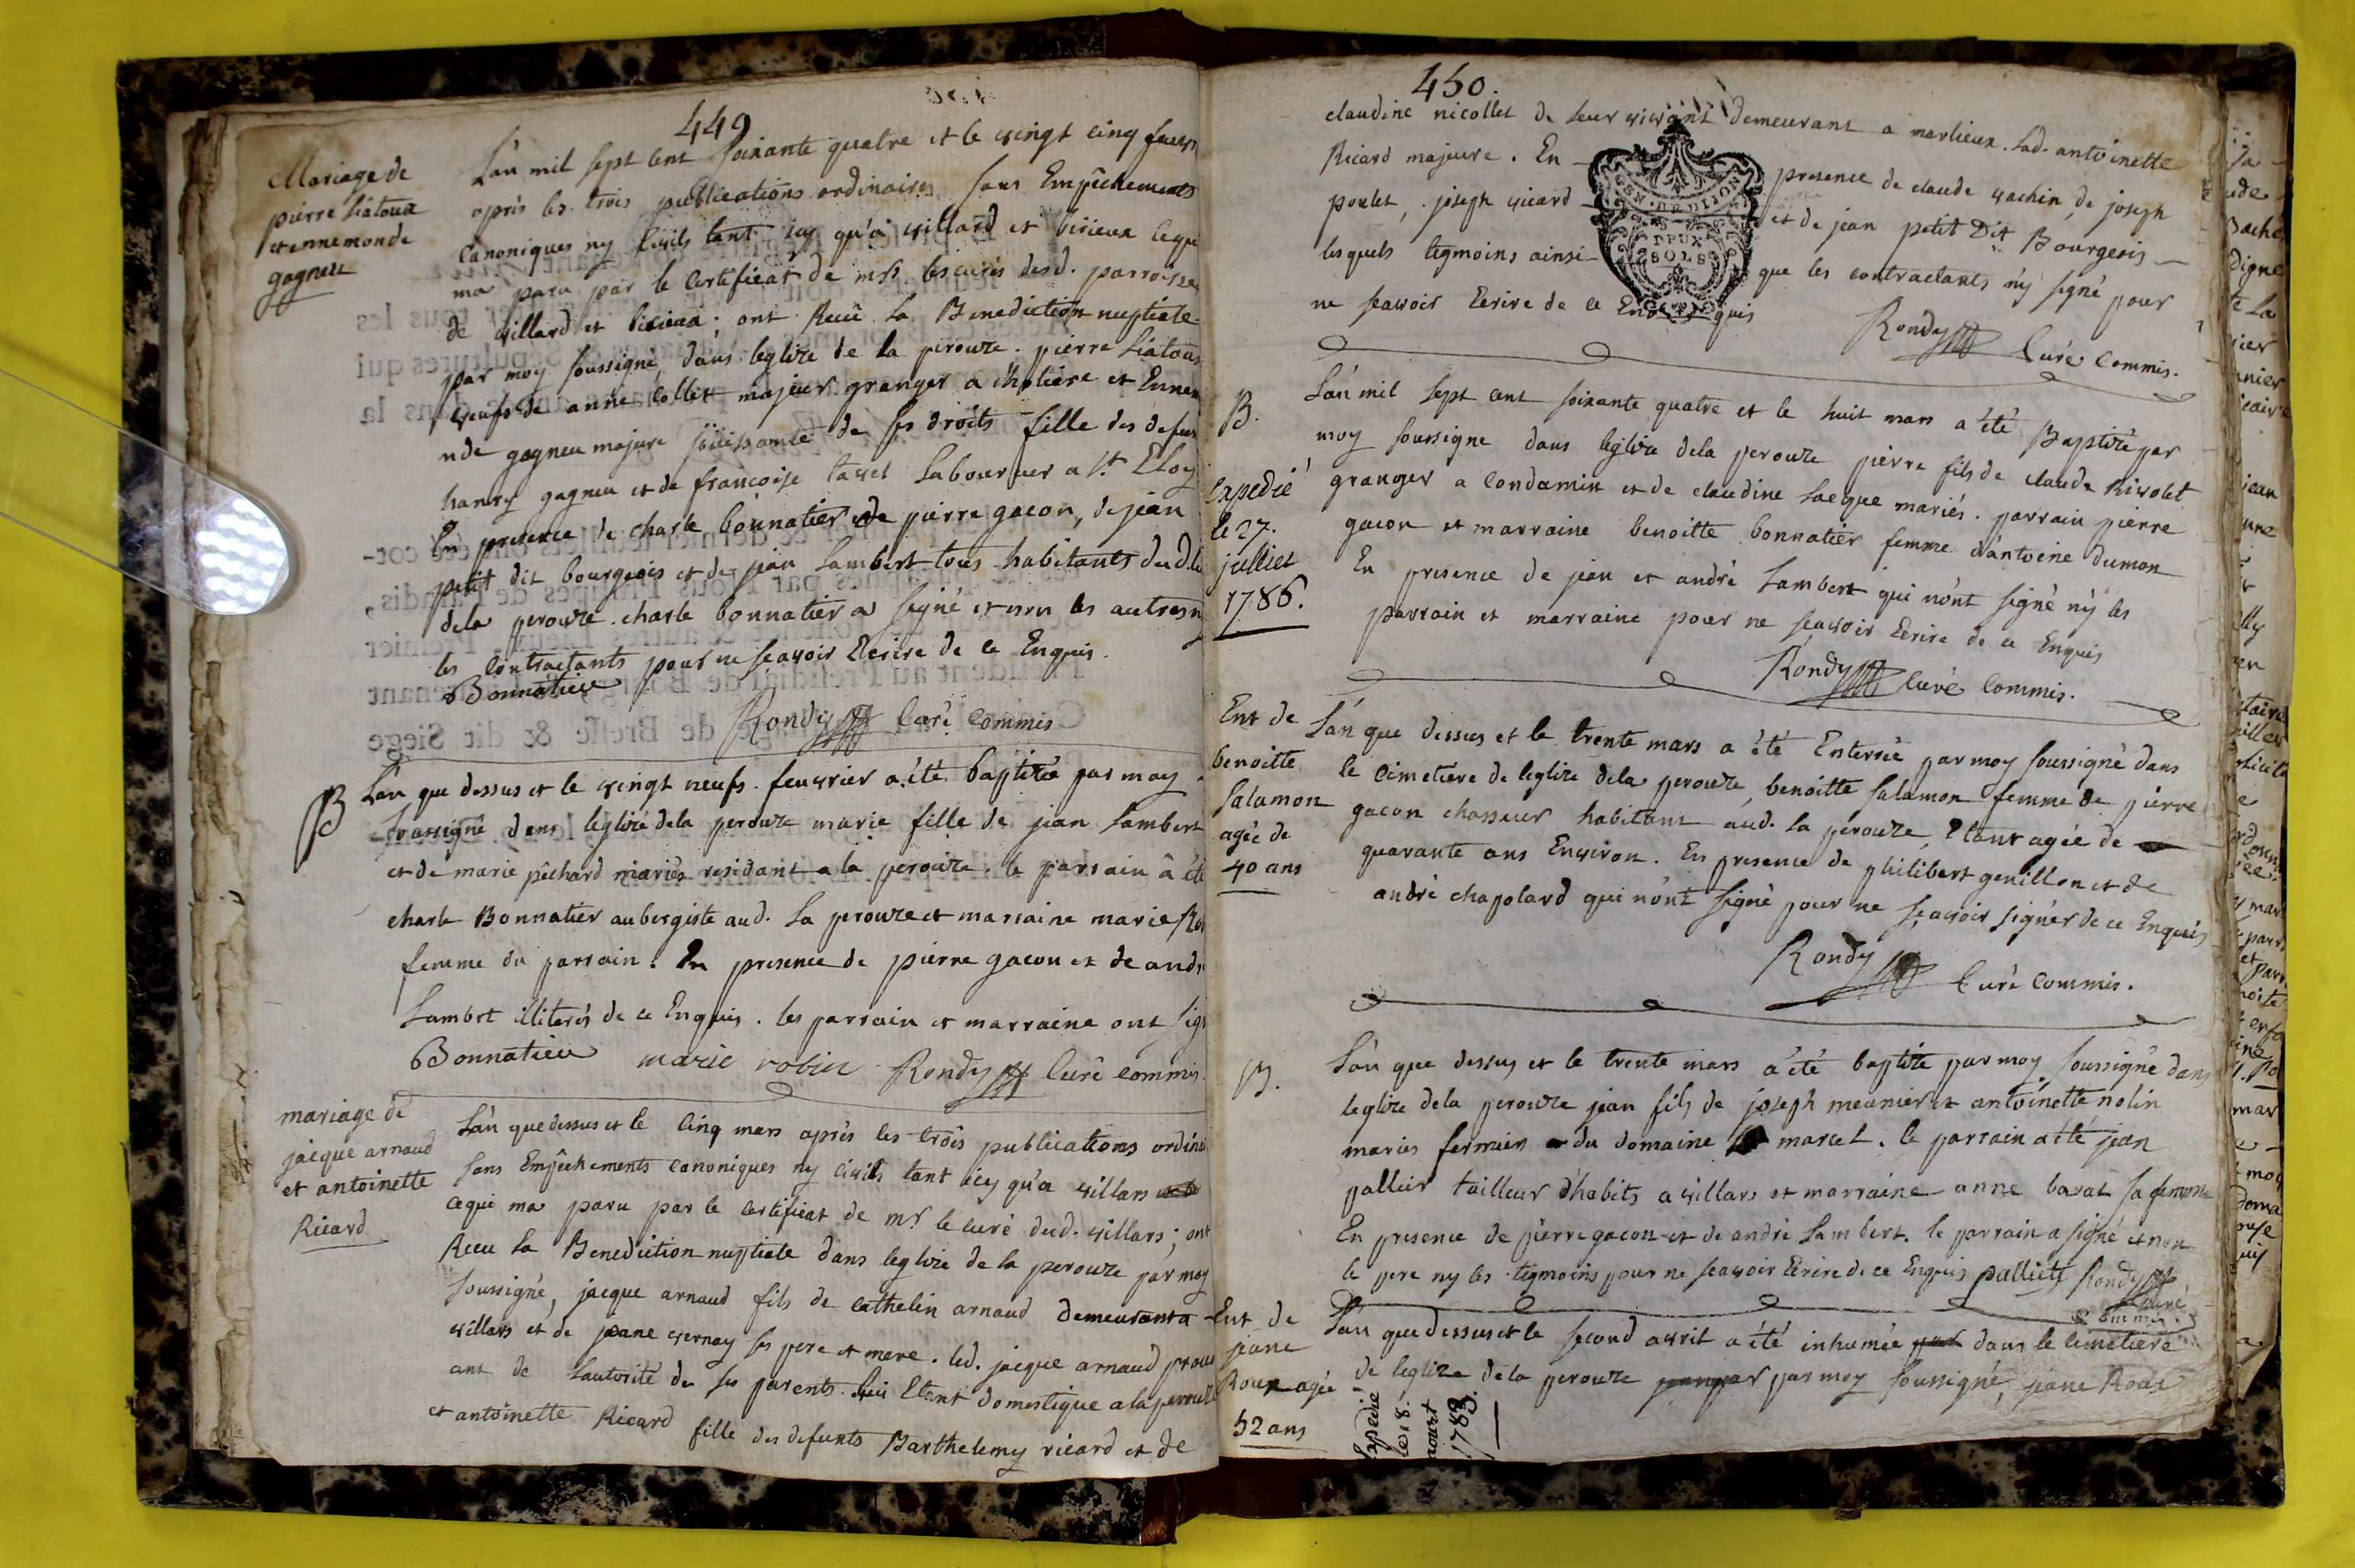 449
Mariage de
pierre Liatoux
et ennemonde
gagneu
L'an mil sept cent soixante quatre et le vingt cinq feuvr
après les trois publications ordinaires sans Empêchements
Canoniques ny Civils tant icy qu'à villard et birieux ce qui
ma paru par le Certificat de mrs les curés desd. parroisses
de villard et birieux ; ont Recü La Benediction nuptiale
par moy soussigné, dans leglize de la perouze. pierre Liatoux
veufs de anne Collet majeur granger a cholière et Ennem
nde gagneu majure joüissante de ses droits fille des defun
hanry gagneu et de francoise tavel Laboureur a St. Eloy
En presence de charle bonnatier de pierre gacon, de jean
petit dit bourgeois et de jean Lambert tous habitants dud. lie
dela perouze. charle bonnatier a signé et non les autres n
les Contractants pour ne sçavoir Ecrire de ce Enquis.
Bonnatier
Rondy Curé Commis
B
L'an que dessus et le vingt neufs feuvrier a été baptizée par moy
soussigné dans leglize dela perouze marie fille de jean Lambert
et de marie pêchard mariés residant a la perouze. le parrain â été
charle Bonnatier aubergiste aud. La perouze et marraine marie Ro
femme du parrain. En presence de pierre gacon et de andr
Lambrt illiterés de ce Enquis. les parrain et marraine ont sig
Bonnatier marie robin Rondy Curé commis.
mariage de
jacque arnaud
et antoinette
Ricard
L'an que dessus et le Cinq mars après les trois publications ordina
sans Empêchements canoniques ny civils tant icy qu'a villars
ce qui ma paru par le Certificat de mr. le curé dud. villars ; ont
Receu La Benediction nuptiale dans leglize de la perouze par moy
soussigné, jacque arnaud fils de Cathelin arnaud demeurant a
villars et de jeane vernay ses pere et mere. led. jacque arnaud proce
ant de Lautorité de ses parents. Etant domestique a la perouze
et antoinette Ricard fille des defunts Barthelemy ricard et de
450.
claudine nicollet de leur vivant demeurant a marlieux. Lad. antoinette
Ricard majeure. En presence de claude vachin, de joseph
poulet, joseph vicard et de jean petit Dit Bourgeois
lesquels tegmoins ainsi que les contractants n'y signé pour
ne scavoir Ecrire de ce Enquis
GEN. DE DIJON
DEUX
SOLS
Rondy Curé Commis.
B.
Expedié
le 27.
julliet
1786.
L'an mil sept cent soixante quatre et le huit mars a été Baptizé par
moy soussigne dans leglize dela perouze pierre fils de claude nivolet
granger a Condamin et de claudine Lacque mariés. parrain pierre
gacon et marraine benoitte bonnatier femme d'antoine dumon
En presence de jean et andré Lambert qui n'ont signé n'y les
parrain et marraine pour ne sçavoir Ecrire de ce Enquis
Rondy Curé Commis.
Ent de
benoitte
Salamon
agée de
40 ans
L'an que dessus et le trente mars a été Enterrée par moy soussigné dans
le Cimetière de leglize dela perouze, benoitte Salamon femme de pierre
gacon chasseur habitant aud. La perouze, Etant agée de
quarante ans Environ. En presence de philibert genillon et de
andré chapolard qui n'ont signé pour ne sçavoir signer de ce Enquis
Rondy Curé Commis.
B.
L'an que dessus et le trente mars a été baptizé par moy soussigné dans
leglize dela perouze jean fils de joseph meunier et antoinette nolin
mariés fermiers du domaine marcel. le parrain a été jean
palleir tailleur d'habits a villars et marraine anne barat sa femme
En presence de pierre gacon et de andré Lambert. le parrain a signé et non
le pere ny les tegmoins pour ne scavoir Ecrire de ce Enquis Rondy
Curé
Commis.
Ent de
jeane
Roux agée
52 ans
Expedié
le 18.
aoust
1783.
L'an que dessus et le second avril a été inhumée dans le Cimetière
de leglize de la perouze par moy soussigné, jeane Roux